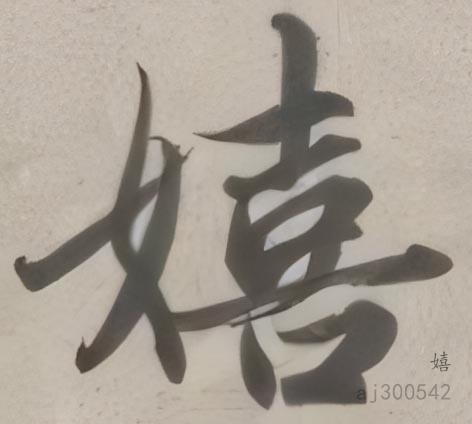 嬉
嬉
aj300542